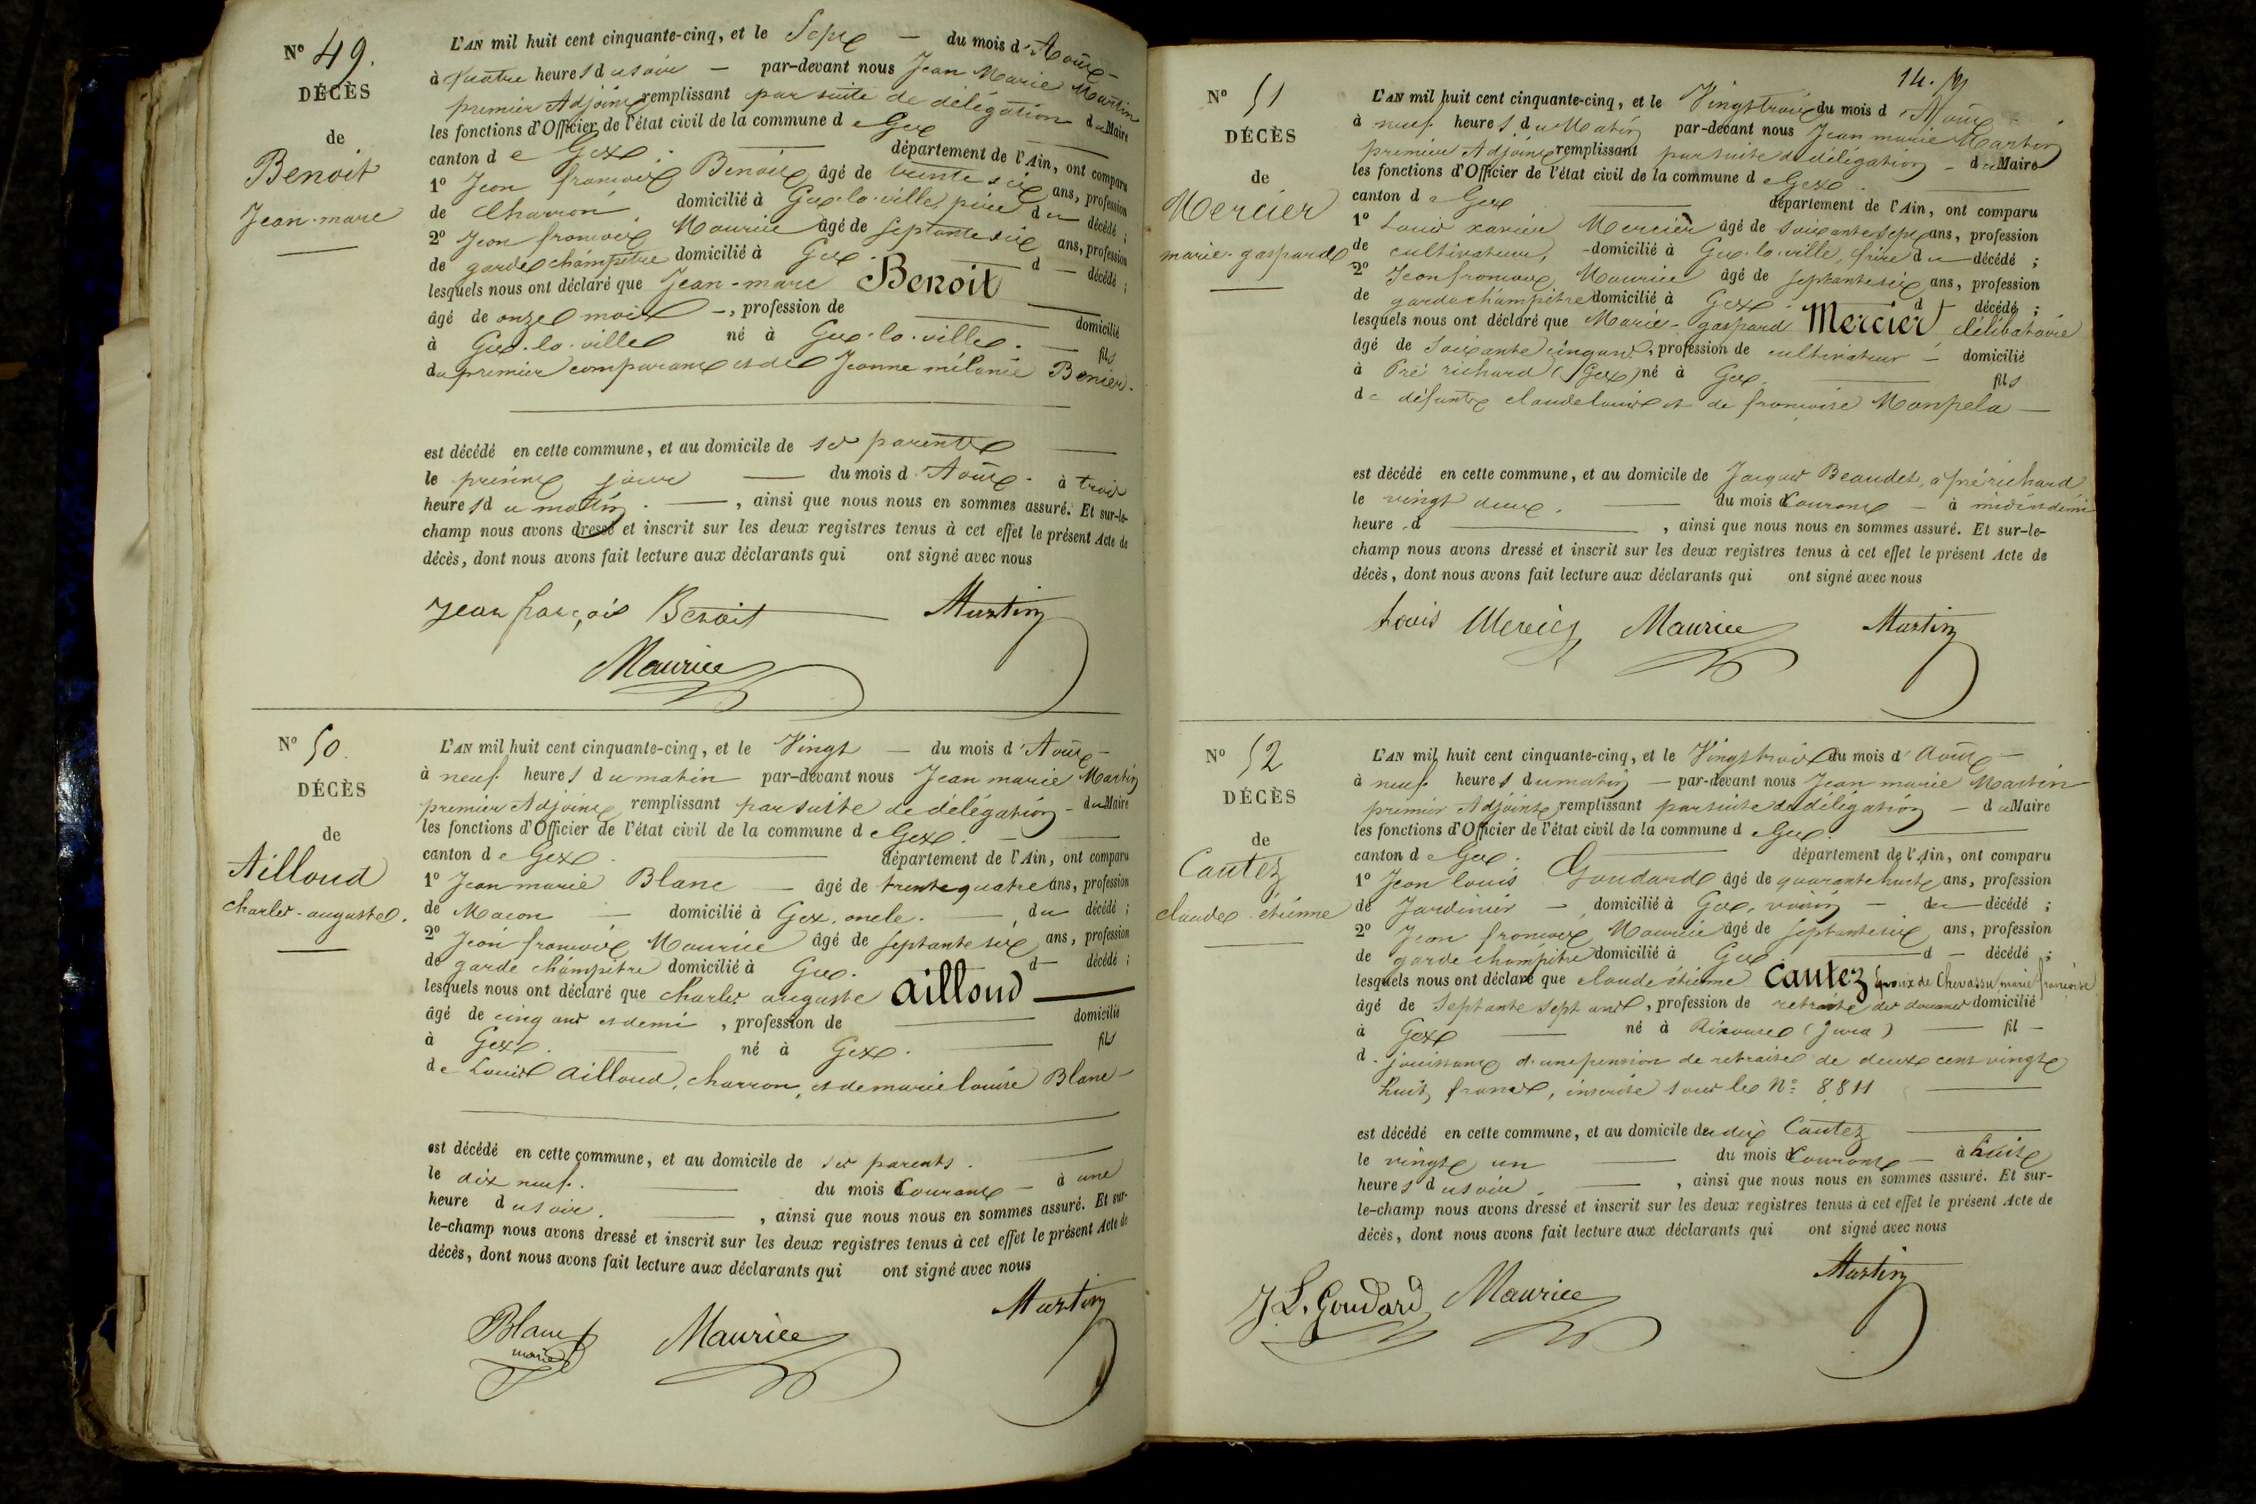 Nº 49.
DÉCÈS
de
Benoit
Jean-marc
L'AN mil huit cent cinquante-cinq, et le Sept — du mois d'Août —
à quatre heures du soir — par-devant nous Jean Marie Martin
premier Adjoint remplissant par suite de délégation du Maire
les fonctions d'Officier de l'état civil de la commune de Gex
canton de Gex. — département de l'Ain, ont comparu
1º Jean françois Benoit âgé de trente six ans, profession
de Charron, domicilié à Gex-la-ville, père du décédé ;
2º Jean françois Maurice âgé de septante six ans, profession
de garde champêtre domicilié à Gex. — d — décédé ;
lesquels nous ont déclaré que Jean-marc Benoit —
âgé de onze mois —, profession de — domicilié
à Gex-la-ville né à Gex-la-ville. — fils
du premier comparant et de Jeanne mélanie Benier.
est décédé en cette commune, et au domicile de ses parents —
le présent jour — du mois d'Août. à trois
heures du matin. —, ainsi que nous nous en sommes assuré. Et sur-le-
champ nous avons dressé et inscrit sur les deux registres tenus à cet effet le présent Acte de
décès, dont nous avons fait lecture aux déclarants qui ont signé avec nous
Jean françois Benoit Martin
Maurice
Nº 50.
DÉCÈS
de
Ailloud
charles-auguste.
L'AN mil huit cent cinquante-cinq, et le Vingt — du mois d'Août —
à neuf heures du matin par-devant nous Jean marie Martin
premier Adjoint remplissant par suite de délégation — du Maire
les fonctions d'Officier de l'état civil de la commune de Gex. —
canton de Gex. — département de l'Ain, ont comparu
1º Jean marie Blanc — âgé de trente quatre ans, profession
de Macon — domicilié à Gex, oncle. — du décédé ;
2º Jean françois Maurice âgé de septante six ans, profession
de garde champêtre domicilié à Gex. d — décédé ;
lesquels nous ont déclaré que charles auguste Ailloud —
âgé de cinq ans et demi, profession de — domicilié
à Gex. — né à Gex. — fils
de Louis Ailloud, charron, et de marie louise Blanc —
est décédé en cette commune, et au domicile de ses parents. —
le dix neuf. — du mois Courant — à une
heure du soir. —, ainsi que nous nous en sommes assuré. Et sur-
le-champ nous avons dressé et inscrit sur les deux registres tenus à cet effet le présent Acte de
décès, dont nous avons fait lecture aux déclarants qui ont signé avec nous
Blanc Maurice Martin
marie
14.
Nº 51
DÉCÈS
de
Mercier
marie-gaspard
L'AN mil huit cent cinquante-cinq, et le Vingt trois du mois d'Août —
à neuf heures du Matin par-devant nous Jean marie Martin
premier Adjoint remplissant par suite de délégation — du Maire
les fonctions d'Officier de l'état civil de la commune de Gex. —
canton de Gex — département de l'Ain, ont comparu
1º Louis xavier Mercier âgé de soixante sept ans, profession
de cultivateur, domicilié à Gex-la-ville, frère du décédé ;
2º Jean françois Maurice âgé de septante six ans, profession
de garde champêtre domicilié à Gex. d décédé ;
lesquels nous ont déclaré que Marie-gaspard Mercier célibataire
âgé de soixante cinq ans, profession de cultivateur — domicilié
à Pré richard (Gex) né à Gex. — fils
de défunts claude louis et de françoise Monpela —
est décédé en cette commune, et au domicile de Jacques Beaudet, à pré richard
le vingt deux. — du mois Courant — à midi et demi
heure d —, ainsi que nous nous en sommes assuré. Et sur-le-
champ nous avons dressé et inscrit sur les deux registres tenus à cet effet le présent Acte de
décès, dont nous avons fait lecture aux déclarants qui ont signé avec nous
Louis Mercier Maurice Martin
Nº 52
DÉCÈS
de
Cautez
claude-etienne
L'AN mil huit cent cinquante-cinq, et le Vingt trois du mois d'août —
à neuf heures du matin — par-devant nous Jean marie Martin
premier Adjoint remplissant par suite de délégation — du Maire
les fonctions d'Officier de l'état civil de la commune de Gex. —
canton de Gex. — département de l'Ain, ont comparu
1º Jean louis Goudard âgé de quarante huit ans, profession
de Jardinier —, domicilié à Gex, voisin — du décédé ;
2º Jean françois Maurice âgé de septante six ans, profession
de garde champêtre domicilié à Gex — d — décédé ;
lesquels nous ont déclaré que claude étienne Cautez Epoux de Chevassu marie françoise
âgé de septante sept ans, profession de retraité des douanes domicilié
à Gex — né à Rixouse (Jura) — fil —
d. jouissant d'une pension de retraite de deux cent vingt
huit francs, inscrite sous le Nº 8811 —
est décédé en cette commune, et au domicile dudit Cautez —
le vingt un — du mois Courant — à huit
heures du soir. —, ainsi que nous nous en sommes assuré. Et sur-
le-champ nous avons dressé et inscrit sur les deux registres tenus à cet effet le présent Acte de
décès, dont nous avons fait lecture aux déclarants qui ont signé avec nous
J. L. Goudard Maurice Martin